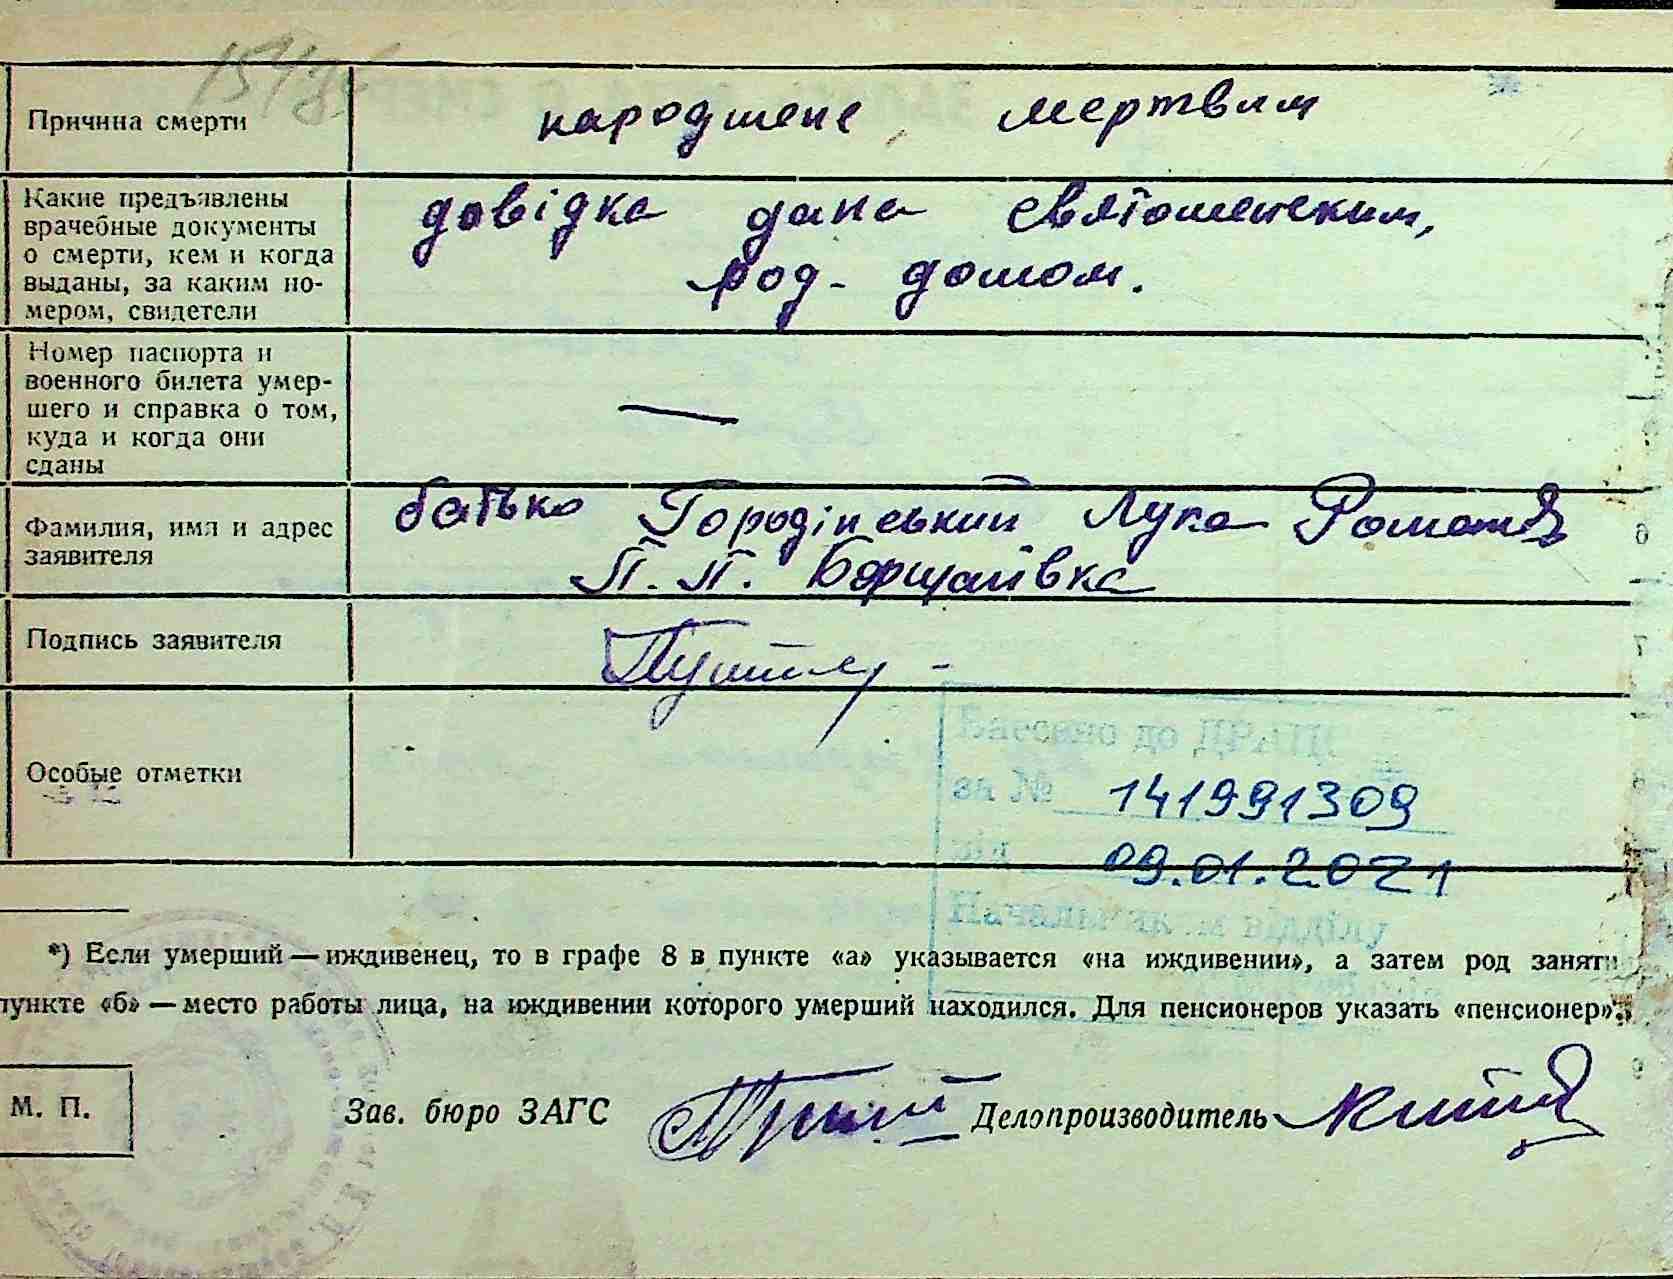 Причина смерти
народжене мертвим
Какие предъявлены
врачебные документы
о смерти, кем и когда
выданы, за каким но-
мером, свидетели
довідка дана святошинським,
род. домом.
Номер паспорта и
военного билета умер-
шего и справка о том,
куда и когда они
сданы
—
Фамилия, имя и адрес
заявителя
батько Городінський Лука
П. П. Борщагівка
Подпись заявителя
Особые отметки
Внесено до ДРАЦС
за № 141991309
від 09.01.2021
Начальник відділу
*) Если умерший — иждивенец, то в графе 8 в пункте «а» указывается «на иждивении», а затем род заняти
пункте «б» — место работы лица, на иждивении которого умерший находился. Для пенсионеров указать «пенсионер».
М. П.
Зав. бюро ЗАГС
Делопроизводитель